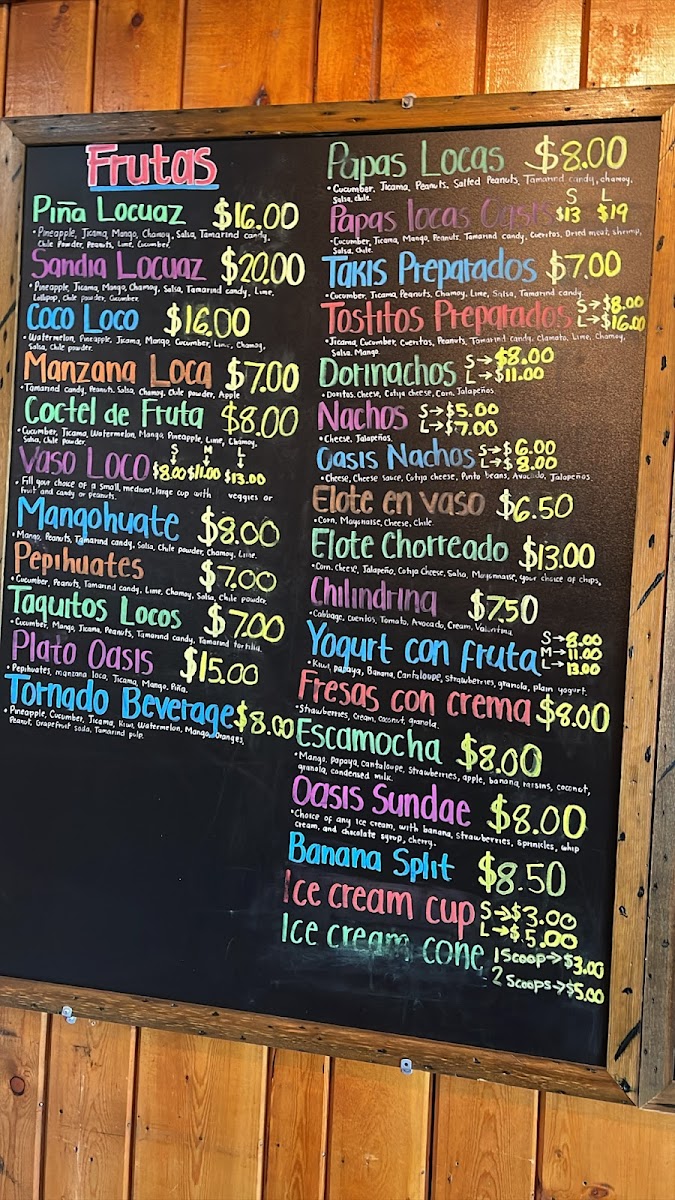 Frutas
Piña Locuaz $16.00
• Pineapple, Jicama, Mango, Chamoy, Salsa, Tamarind candy,
Chile Powder, Peanuts, Lime, Cucumber.
Sandia Locuaz $20.00
• Pineapple, Jicama, Mango, Chamoy, Salsa, Tamarind candy, Lime,
Lollipop, Chile powder, Cucumber.
Coco Loco $16.00
• Watermelon, Pineapple, Jicama, Mango, Cucumber, Lime, Chamoy,
Salsa, Chile powder.
Manzana Loca $7.00
• Tamarind candy, Peanuts, Salsa, Chamoy, Chile powder, Apple
Coctel de Fruta $8.00
• Cucumber, Jicama, Watermelon, Mango, Pineapple, Lime, Chamoy,
Salsa, Chile powder.
S M L
Vaso Loco $8.00 $11.00 $13.00
• Fill your choice of a small, medium, large cup with veggies or
fruit and candy or peanuts.
Mangohuate $8.00
• Mango, Peanuts, Tamarind candy, Salsa, Chile powder, Chamoy, Lime.
Pepihuates $7.00
• Cucumber, Peanuts, Tamarind candy, Lime, Chamoy, Salsa, Chile powder.
Taquitos Locos $7.00
• Cucumber, Mango, Jicama, Peanuts, Tamarind candy, Tamarind tortilla.
Plato Oasis $15.00
• Pepihuates, manzana loca, Jicama, Mango, Piña.
Tornado Beverage $8.00
• Pineapple, Cucumber, Jicama, Kiwi, Watermelon, Mango, Oranges,
Peanut, Grapefruit soda, Tamarind pulp.
Papas Locas $8.00
• Cucumber, Jicama, Peanuts, Salted Peanuts, Tamarind candy, chamoy,
Salsa, chile.
S L
Papas locas Oasis $13 $19
• Cucumber, Jicama, Mango, Peanuts, Tamarind candy, Cueritos, Dried meat, shrimp,
Salsa, Chile.
Takis Preparados $7.00
• Cucumber, Jicama, Peanuts, Chamoy, Lime, Salsa, Tamarind candy.
Tostitos Preparados S→$8.00
L→$16.00
• Jicama, Cucumber, Cueritos, Peanuts, Tamarind candy, Clamato, Lime, Chamoy,
Salsa, Mango.
Dorinachos S→$8.00
L→$11.00
• Doritos, Cheese, Cotija cheese, Corn, Jalapeños.
Nachos S→$5.00
L→$7.00
• Cheese, Jalapeños.
Oasis Nachos S→$6.00
L→$8.00
• Cheese, Cheese sauce, Cotija cheese, Pinto beans, Avocado, Jalapeños
Elote en vaso $6.50
• Corn, Mayonaise, Cheese, Chile.
Elote Chorreado $13.00
• Corn, Cheese, Jalapeño, Cotija Cheese, Salsa, Mayonnaise, your choice of chips,
Chilindrina $7.50
• Cabbage, cueritos, Tomato, Avocado, Cream, Valentina
Yogurt con fruta S→8.00
M→11.00
L→13.00
• Kiwi, papaya, Banana, Cantaloupe, Strawberries, granola, plain yogurt.
Fresas con crema $8.00
• Strawberries, Cream, Coconut, granola.
Escamocha $8.00
• Mango, papaya, Cantaloupe, strawberries, apple, banana, raisins, coconut,
granola, condensed milk.
Oasis Sundae $8.00
• Choice of any ice cream, with banana, strawberries, sprinkles, whip
cream, and chocolate syrup, cherry.
Banana Split $8.50
Ice cream cup S→$3.00
L→$5.00
Ice cream cone 1 Scoop→$3.00
2 Scoops→$5.00